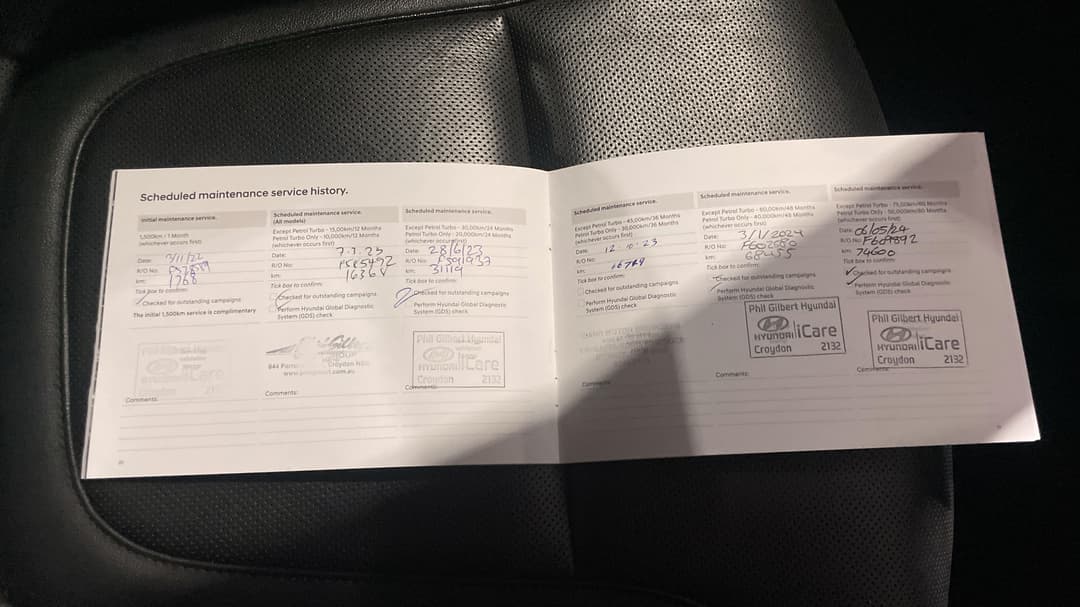 Scheduled maintenance service history.
Initial maintenance service.
1,500km / 1 Month
(whichever occurs first)
Date: 3/11/22
R/O No:
km: 1768
Tick box to confirm:
Checked for outstanding campaigns
The initial 1,500km service is complimentary
Comments:
Scheduled maintenance service.
(All models)
Except Petrol Turbo - 15,000km/12 Months
Petrol Turbo Only - 10,000km/12 Months
(whichever occurs first)
Date: 7.3.23
R/O No:
km:
Tick box to confirm:
Checked for outstanding campaigns
Perform Hyundai Global Diagnostic
System (GDS) check
844 Croydon
Comments:
Scheduled maintenance service.
Except Petrol Turbo - 30,000km/24 Months
Petrol Turbo Only - 20,000km/24 Months
(whichever occurs first)
Date: 28/6/23
R/O No:
km: 31114
Tick box to confirm:
Checked for outstanding campaigns
Perform Hyundai Global Diagnostic
System (GDS) check
Phil Gilbert Hyundai
HYUNDAI iCare
Croydon 2132
Comments:
Scheduled maintenance service.
Except Petrol Turbo - 45,000km/36 Months
Petrol Turbo Only - 30,000km/36 Months
(whichever occurs first)
Date: 12.10.23
R/O No:
km:
Tick box to confirm:
Checked for outstanding campaigns
Perform Hyundai Global Diagnostic
System (GDS) check
Comments:
Scheduled maintenance service.
Except Petrol Turbo - 60,000km/48 Months
Petrol Turbo Only - 40,000km/48 Months
(whichever occurs first)
Date: 31/1/2024
R/O No: F602580
km: 68455
Tick box to confirm:
Checked for outstanding campaigns
Perform Hyundai Global Diagnostic
System (GDS) check
Phil Gilbert Hyundai
HYUNDAI iCare
Croydon 2132
Comments:
Scheduled maintenance service.
Except Petrol Turbo - 75,000km/60 Months
Petrol Turbo Only - 50,000km/60 Months
(whichever occurs first)
Date: 06/05/24
R/O No: F609892
km: 74600
Tick box to confirm:
Checked for outstanding campaigns
Perform Hyundai Global Diagnostic
System (GDS) check
Phil Gilbert Hyundai
HYUNDAI iCare
Croydon 2132
Comments: